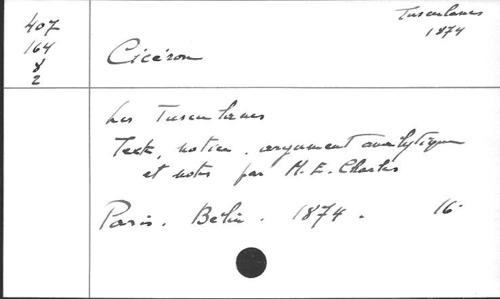 407
164
8
2
Cicéron
Tusculanes
1874
Les Tusculanes
Texte, notice, argument analytique
et notes par H. E. Charles
Paris. Belin. 1874. 16°